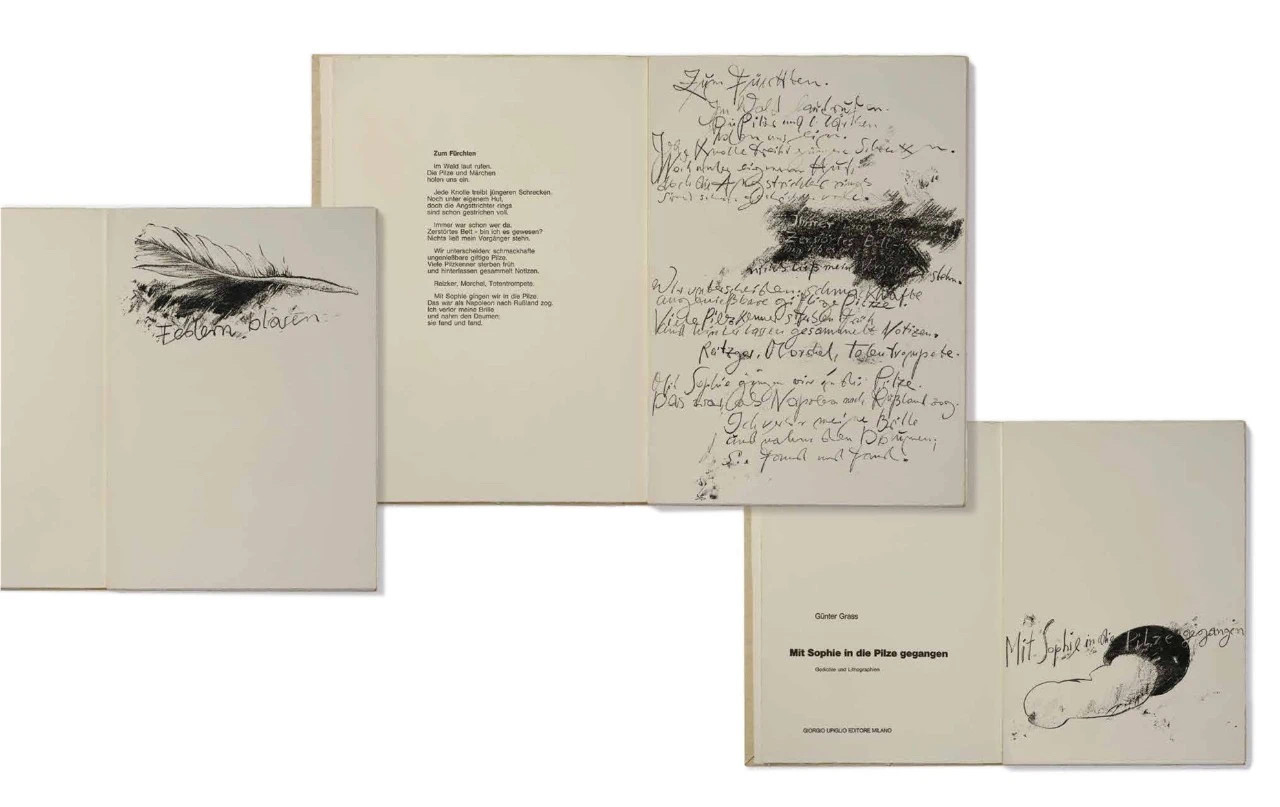 Federn blasen
Zum Fürchten
Im Wald laut rufen.
Die Pilze und Märchen
holen uns ein.
Jede Knolle treibt jüngeren Schrecken.
Noch unter eigenem Hut,
doch die Angsttrichter rings
sind schon gestrichen voll.
Immer war schon wer da.
Zerstörtes Bett – bin ich es gewesen?
Nichts ließ mein Vorgänger stehn.
Wir unterscheiden: schmackhafte
ungenießbare giftige Pilze.
Viele Pilzkenner sterben früh
und hinterlassen gesammelt Notizen.
Reizker, Morchel, Totentrompete.
Mit Sophie gingen wir in die Pilze
Das war als Napoleon nach Rußland zog.
Ich verlor meine Brille
und nahm den Daumen;
sie fand und fand.
Zum Fürchten.
Im Wald laut rufen.
Die Pilze und Märchen
holen uns ein.
Jede Knolle treibt jüngeren
Noch unter eigenem Hut,
doch die Angsttrichter rings
sind schon gestrichen voll.
Nichts ließ mein stehn.
Wir unterscheiden: schmackhafte
ungenießbare giftige Pilze.
Viele Pilzkenner sterben früh
und hinterlassen gesammelt Notizen.
Reitzger, Morchel, Totentrompete.
Mit Sophie gingen wir in die Pilze.
Das war als Napoleon nach Rußland zog.
Ich verlor meine Brille
und nahm den Daumen;
Sie fand und fand.
Günter Grass
Mit Sophie in die Pilze gegangen
Gedichte und Lithographien
GIORGIO UPIGLIO EDITORE MILANO
Mit Sophie in die Pilze gegangen